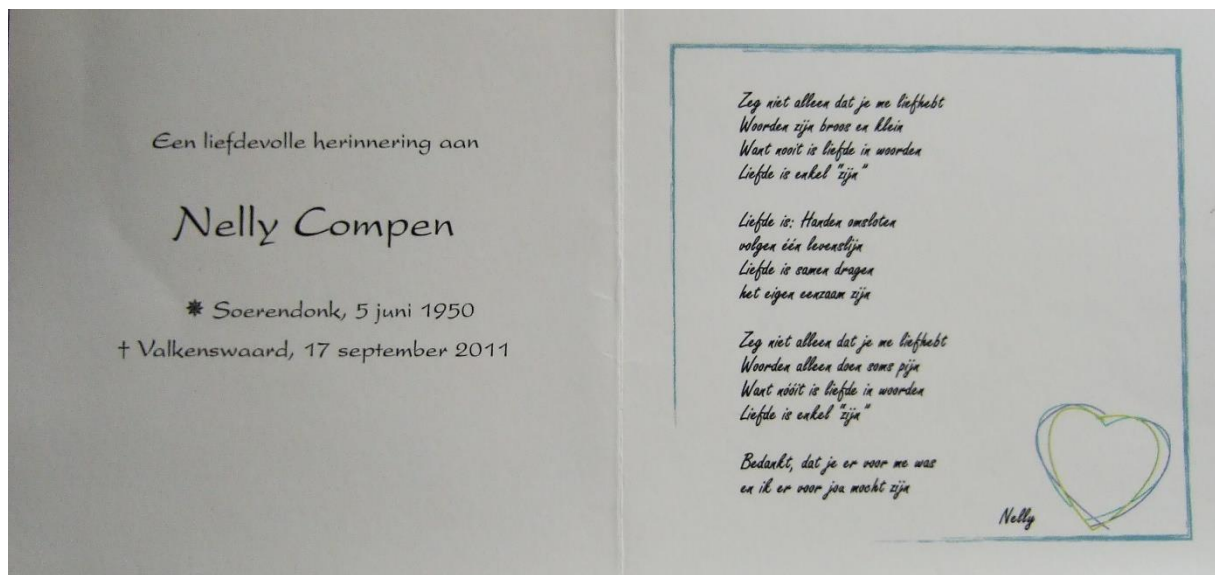 Een liefdevolle herinnering aan
Nelly Compen
✵ Soerendonk, 5 juni 1950
† Valkenswaard, 17 september 2011
Zeg niet alleen dat je me liefhebt
Woorden zijn broos en klein
Want nooit is liefde in woorden
Liefde is enkel "zijn"
Liefde is: Handen omsloten
volgen één levenslijn
Liefde is samen dragen
het eigen eenzaam zijn
Zeg niet alleen dat je me liefhebt
Woorden alleen doen soms pijn
Want nóóit is liefde in woorden
Liefde is enkel "zijn"
Bedankt, dat je er voor me was
en ik er voor jou mocht zijn
Nelly